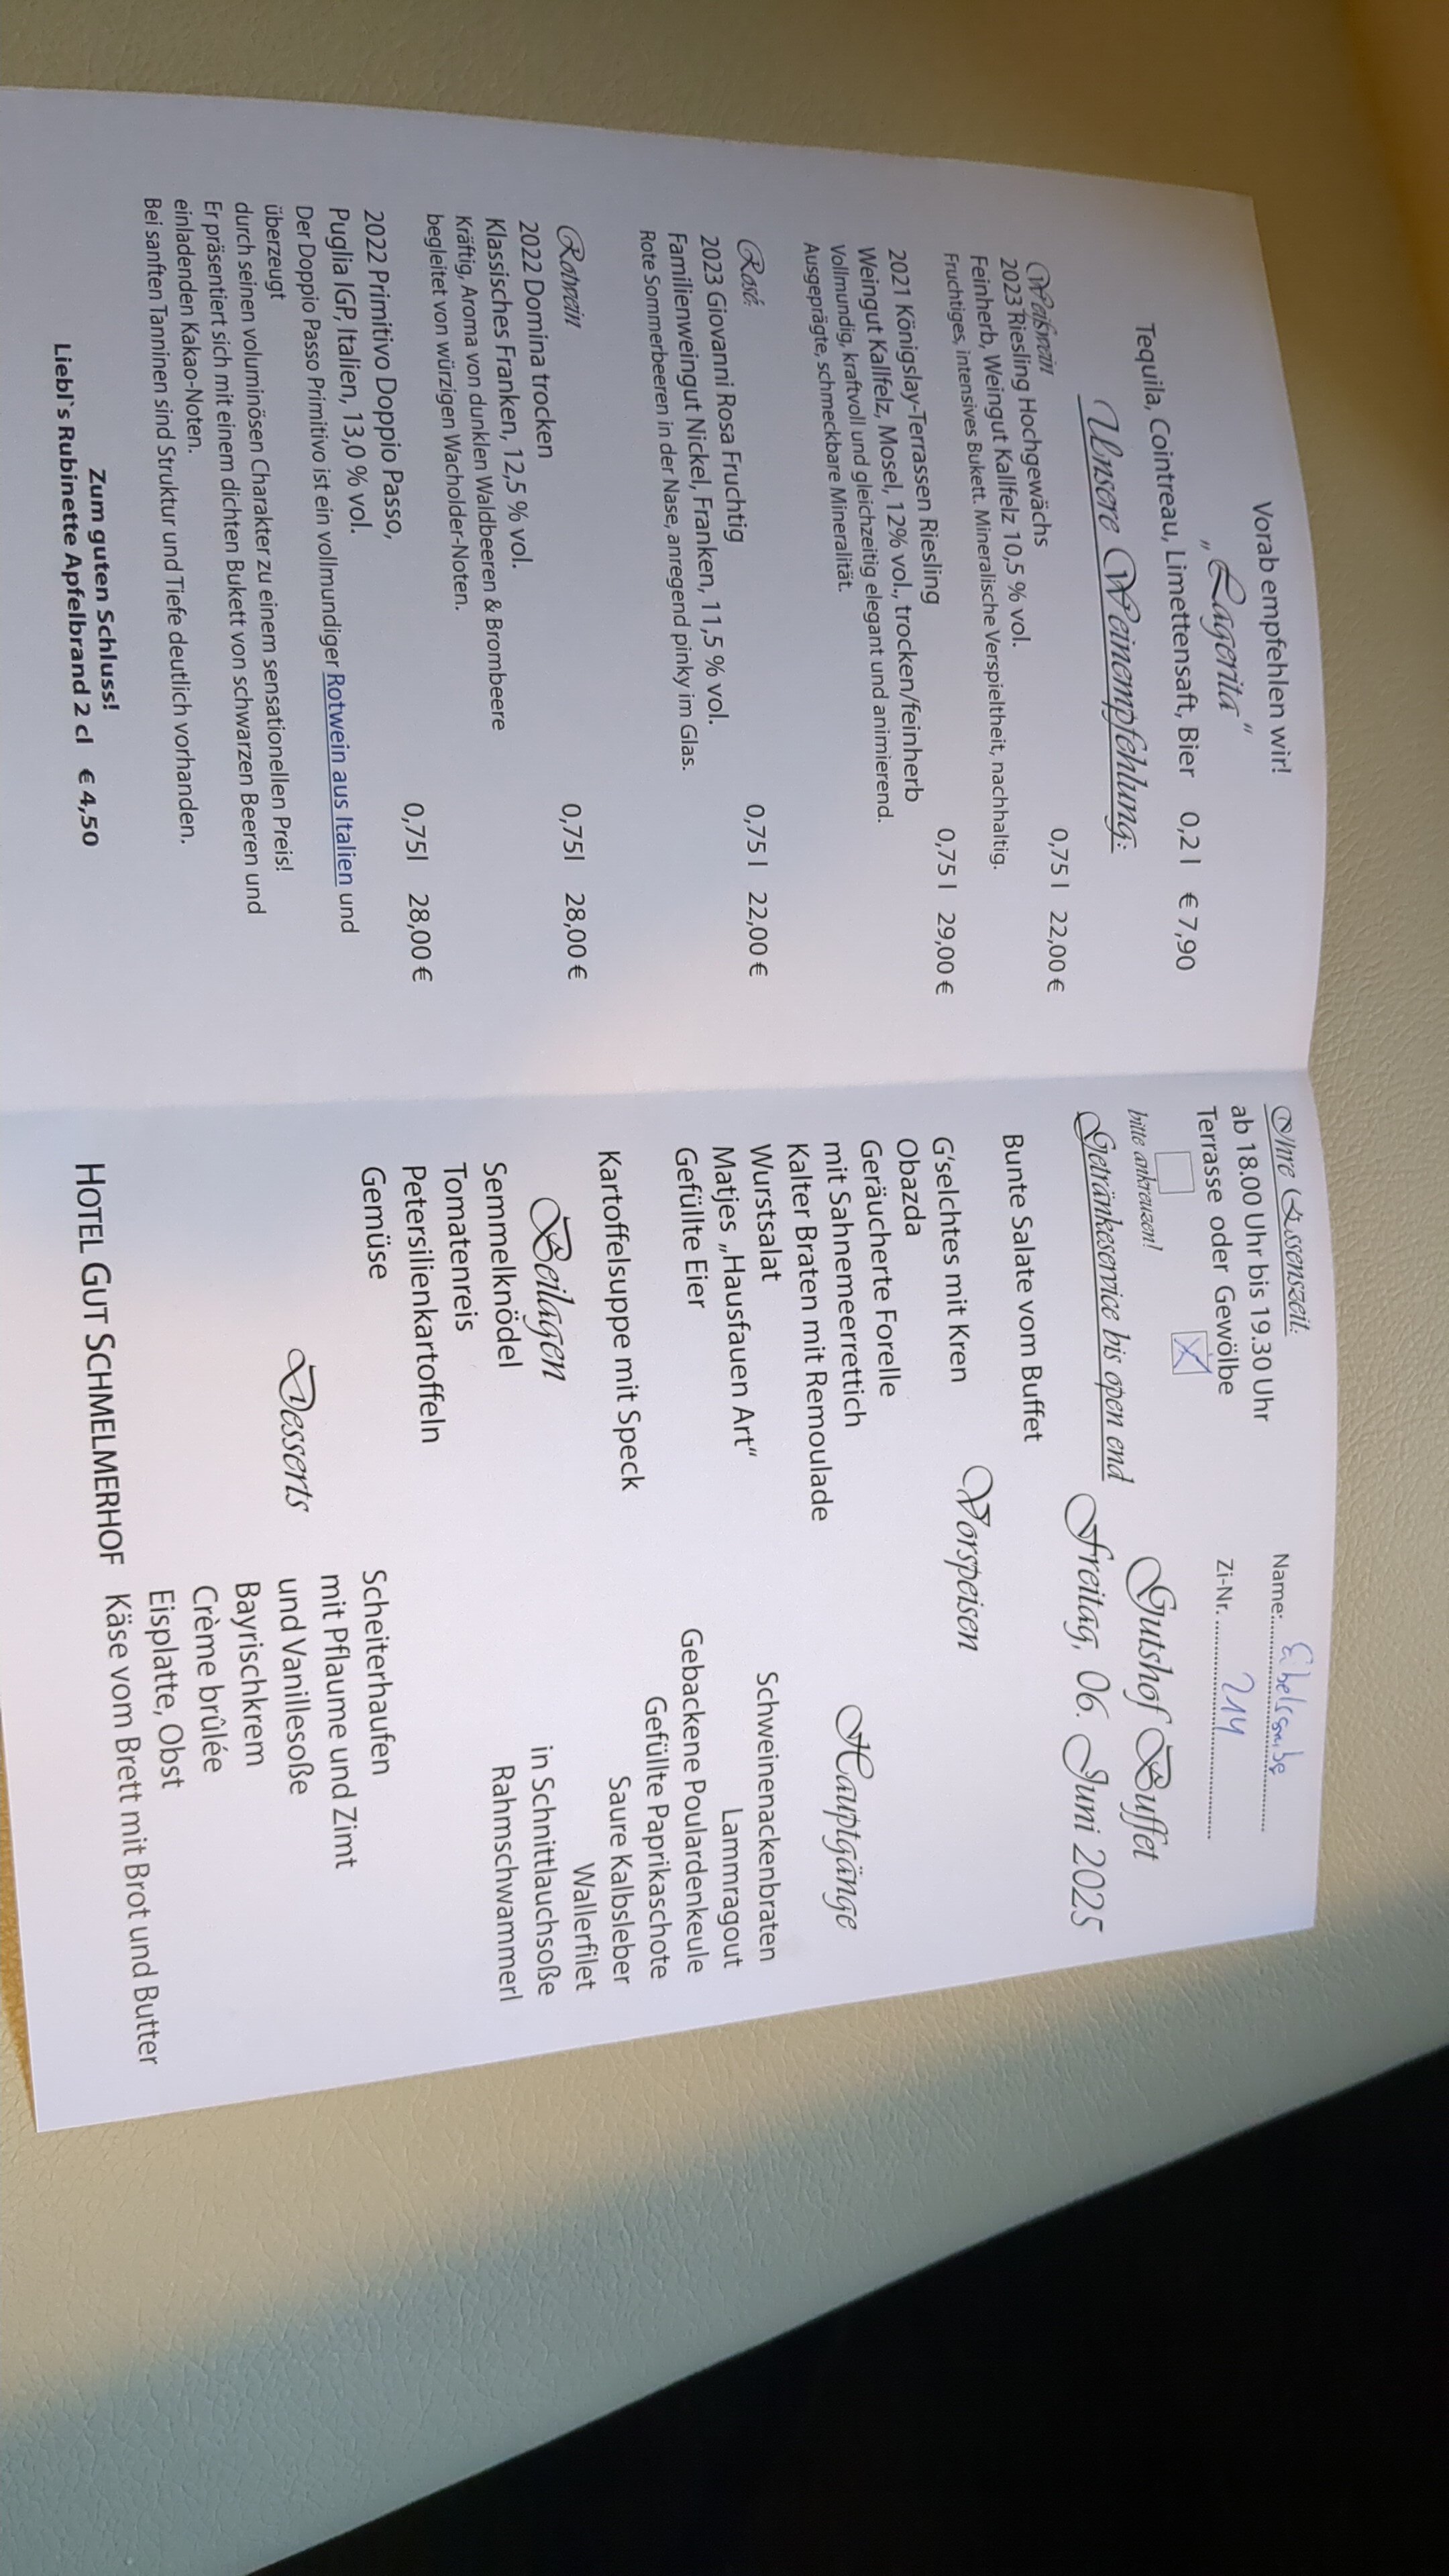 Vorab empfehlen wir!
„Lagerita“
Tequila, Cointreau, Limettensaft, Bier 0,2 l € 7,90
Unsere Weinempfehlung:
Weißwein
2023 Riesling Hochgewächs 0,75 l 22,00 €
Feinherb, Weingut Kallfelz 10,5 % vol.
Fruchtiges, intensives Bukett. Mineralische Verspieltheit, nachhaltig.
2021 Königslay-Terrassen Riesling 0,75 l 29,00 €
Weingut Kallfelz, Mosel, 12% vol., trocken/feinherb
Vollmundig, kraftvoll und gleichzeitig elegant und animierend.
Ausgeprägte, schmeckbare Mineralität.
Rosé:
2023 Giovanni Rosa Fruchtig 0,75 l 22,00 €
Familienweingut Nickel, Franken, 11,5 % vol.
Rote Sommerbeeren in der Nase, anregend pinky im Glas.
Rotwein
2022 Domina trocken 0,75l 28,00 €
Klassisches Franken, 12,5 % vol.
Kräftig, Aroma von dunklen Waldbeeren & Brombeere
begleitet von würzigen Wacholder-Noten.
2022 Primitivo Doppio Passo, 0,75l 28,00 €
Puglia IGP, Italien, 13,0 % vol.
Der Doppio Passo Primitivo ist ein vollmundiger Rotwein aus Italien und
überzeugt
durch seinen voluminösen Charakter zu einem sensationellen Preis!
Er präsentiert sich mit einem dichten Bukett von schwarzen Beeren und
einladenden Kakao-Noten.
Bei sanften Tanninen sind Struktur und Tiefe deutlich vorhanden.
Zum guten Schluss!
Liebl`s Rubinette Apfelbrand 2 cl € 4,50
Ihre Essenszeit:
ab 18.00 Uhr bis 19.30 Uhr
Terrasse oder Gewölbe
X
bitte ankreuzen!
Getränkeservice bis open end
Name:
Zi-Nr. 214
Gutshof Buffet
Freitag, 06. Juni 2025
Vorspeisen
Bunte Salate vom Buffet
G‘selchtes mit Kren
Obazda
Geräucherte Forelle
mit Sahnemeerrettich
Kalter Braten mit Remoulade
Wurstsalat
Matjes „Hausfauen Art“
Gefüllte Eier
Kartoffelsuppe mit Speck
Hauptgänge
Schweinenackenbraten
Lammragout
Gebackene Poulardenkeule
Gefüllte Paprikaschote
Saure Kalbsleber
Wallerfilet
in Schnittlauchsoße
Rahmschwammerl
Beilagen
Semmelknödel
Tomatenreis
Petersilienkartoffeln
Gemüse
Desserts
Scheiterhaufen
mit Pflaume und Zimt
und Vanillesoße
Bayrischkrem
Crème brûlée
Eisplatte, Obst
Käse vom Brett mit Brot und Butter
HOTEL GUT SCHMELMERHOF